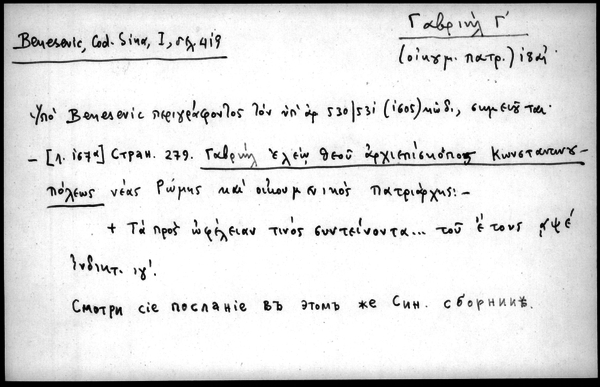 Γαβριὴλ Γ΄
Benesevic, Cod. Sina, I, σελ. 419
(οἰκουμ. πατρ.)
Ὑπὸ Benesevic περιγράφοντος τὸν ὑπ' ἀρ 530/531 (1605) κώδι, σημειοῦται·
– [л. 167α] Стран. 279. Γαβριὴλ ἐλέῳ θεοῦ ἀρχιεπίσκοπος Κωνσταντινου–
πόλεως νέας Ρώμης καὶ οἰκουμενικὸς πατριάρχης:–
+ Τὰ πρὸς ὠφέλειαν τινὸς συντείνοντα... τοῦ ἔτους ᾳψέ
ἰνδικτ. ιγ΄.
Смотри сіе посланіе въ этомъ же Син. сборникѣ.